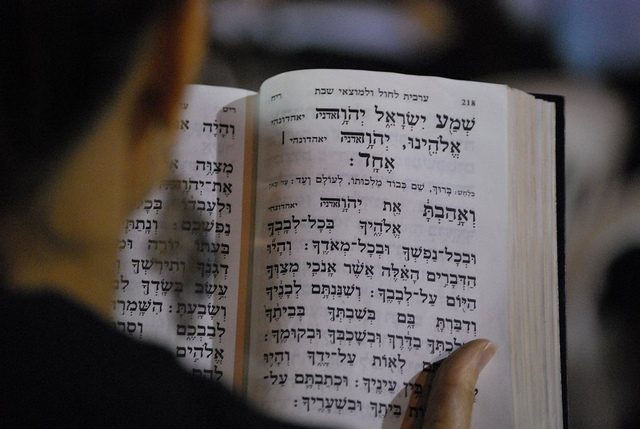 218 ערבית לחול ולמוצאי שבת ריח
שְׁמַע יִשְׂרָאֵל יְהֹוָה אדני יאהדונהי
אֱלֹהֵינוּ, יְהֹוָה אדני יאהדונהי |
אֶחָד:
בלחש: בָּרוּךְ, שֵׁם כְּבוֹד מַלְכוּתוֹ, לְעוֹלָם וָעֶד:
וְאָהַבְתָּ אֵת יְהֹוָה אדני יאהדונהי
אֱלֹהֶיךָ בְּכָל-לְבָבְךָ
וּבְכָל-נַפְשְׁךָ וּבְכָל-מְאֹדֶךָ: וְהָיוּ
הַדְּבָרִים הָאֵלֶּה אֲשֶׁר אָנֹכִי מְצַוְּךָ
הַיּוֹם עַל-לְבָבֶךָ: וְשִׁנַּנְתָּם לְבָנֶיךָ
וְדִבַּרְתָּ בָּם בְּשִׁבְתְּךָ בְּבֵיתֶךָ
וּבְלֶכְתְּךָ בַדֶּרֶךְ וּבְשָׁכְבְּךָ וּבְקוּמֶךָ:
לְאוֹת עַל-יָדֶךָ וְהָיוּ
בֵּין עֵינֶיךָ: וּכְתַבְתָּם עַל-
בֵּיתֶךָ וּבִשְׁעָרֶיךָ:
ריט
וְהָיָה
מִצְוֹתַי
אֶת-יְהֹוָה
וּלְעָבְדוֹ בְּכָל
נַפְשְׁכֶם: וְנָתַתִּי
בְּעִתּוֹ יוֹרֶה
דְגָנֶךָ וְתִירֹשְׁךָ
עֵשֶׂב בְּשָׂדְךָ
וְשָׂבָעְתָּ: הִשָּׁמְרוּ
לְבַבְכֶם
אֱלֹהִים